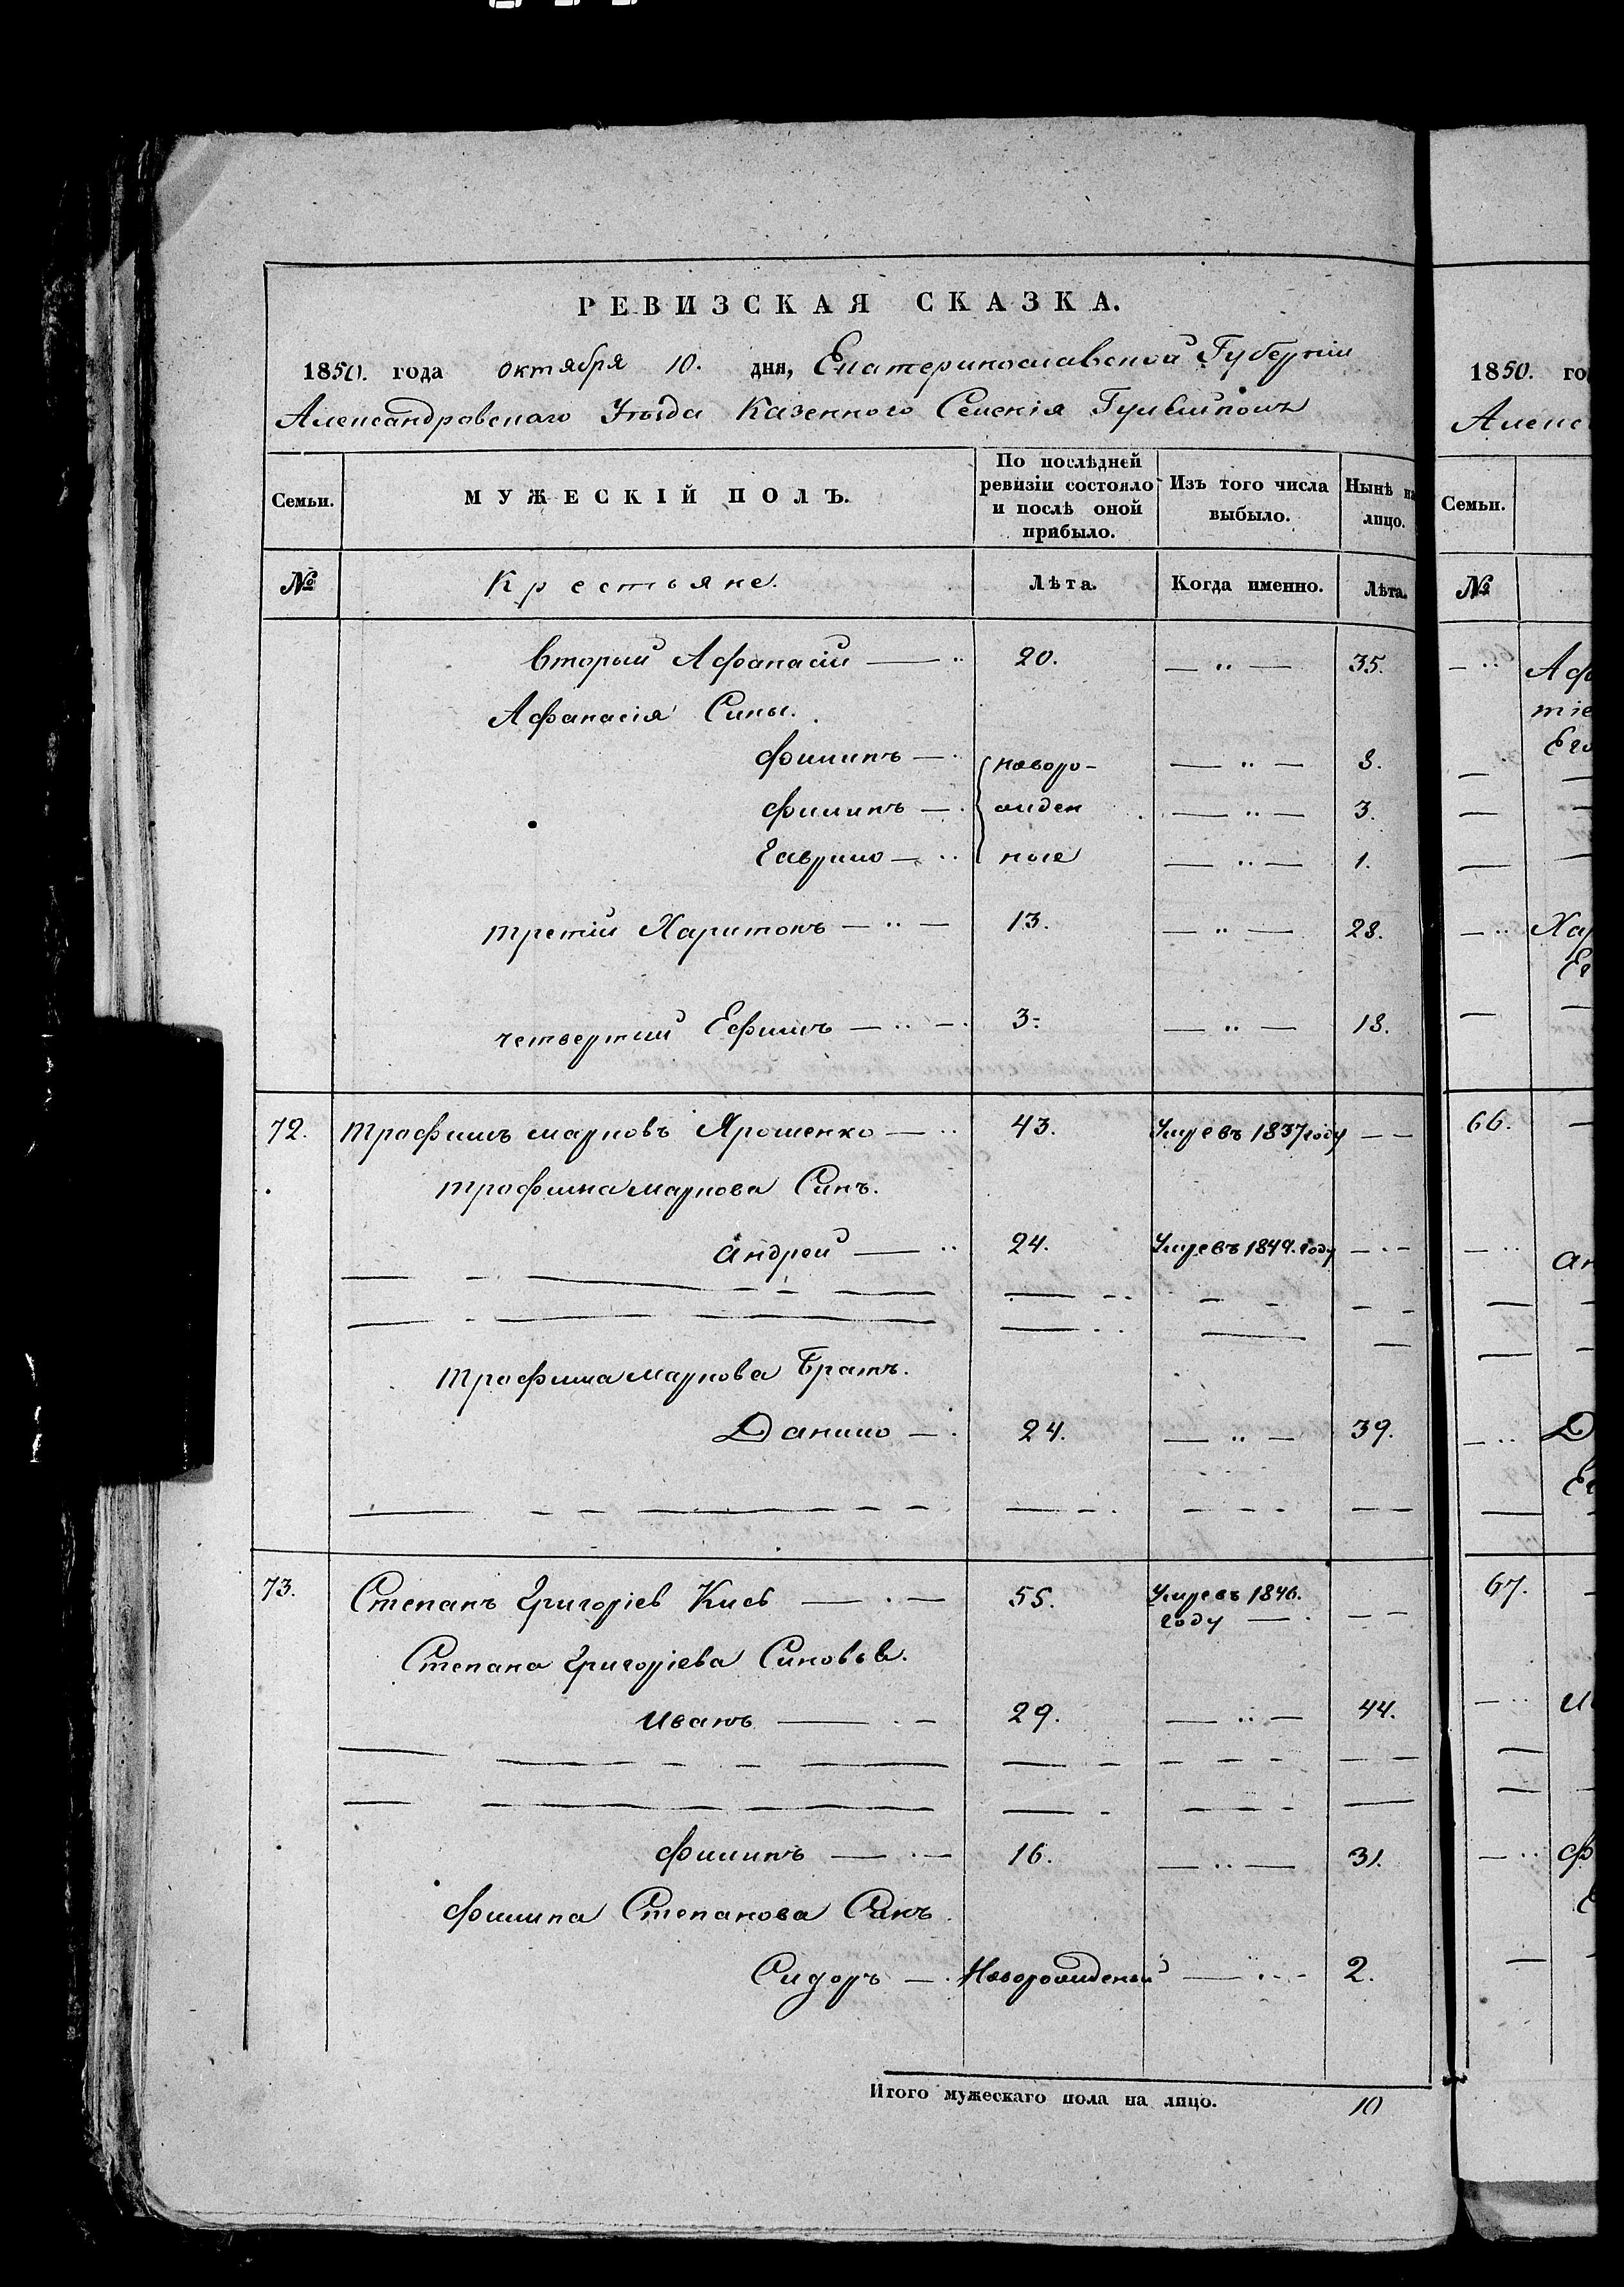 РЕВИЗСКАЯ СКАЗКА.
1850. года октября 10. дня, Екатеринославской Губерніи
Александровскаго Уѣзда Казенного Селенія Гуляйполъ
Семьи. МУЖЕСКІЙ ПОЛЪ. По послѣдней ревизіи состояло и послѣ оной прибыло. Изъ того числа выбыло. Нынѣ на лицо.
№ Крестьяне. Лѣта. Когда именно. Лѣта.
вторый Афанасій — 20. — „ — 35.
Афанасія Сины.
филипъ — новоро- — „ — 8.
филипъ — жден — „ — 3.
Гаврило — ные — „ — 1.
третій Харитонъ — 13. — „ — 28.
четвертий Ефимъ — 3. — „ — 18.
72. трофимъ марковъ Ярошенко — 43. Умревъ 1837 году — —
трофима маркова Синъ.
андрей — 24. Умревъ 1849. году — —
трофима маркова Братъ.
Данило — 24. — „ — 39.
73. Степанъ Григоріев Киев — 55. Умревъ 1846.
году — — —
Степана Григоріева Синовья.
иванъ — 29. — „ — 44.
филипъ — 16. — „ — 31.
филипа Степанова Синъ
Сидоръ — Новорожденый — „ — 2.
Итого мужескаго пола на лицо. 10
1850. го
Алекс
Семьи.
№
Аф
тіе
Его
Хар
Ег
66.
ан
Д
Ег
67.
и
ф